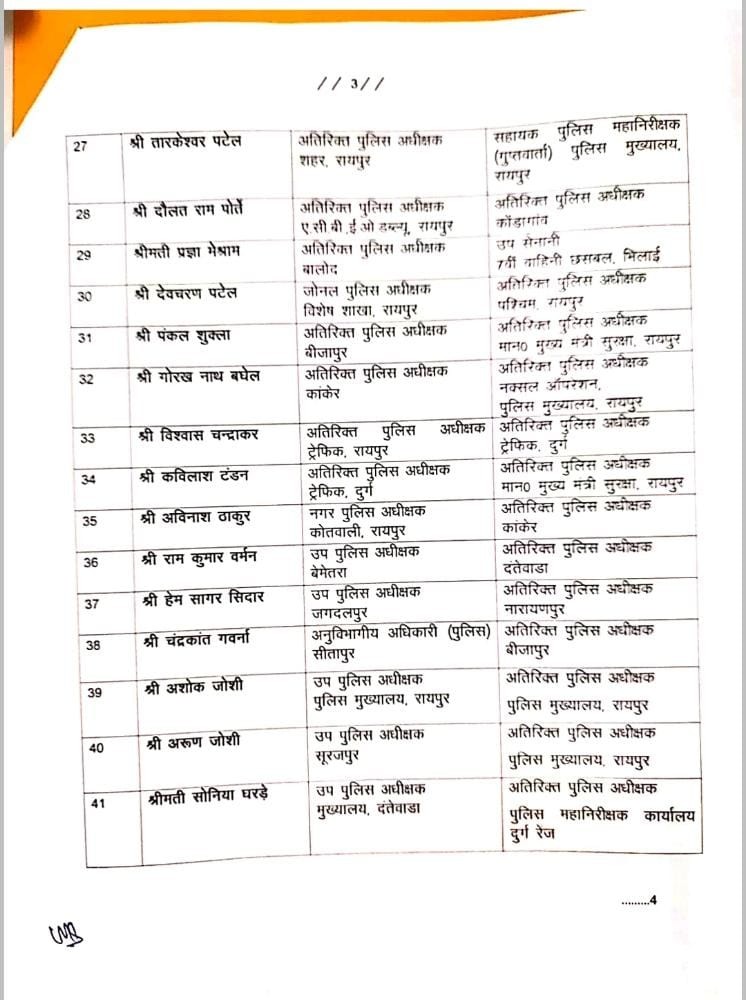 // 3 //
27 श्री तारकेश्वर पटेल अतिरिक्त पुलिस अधीक्षक सहायक पुलिस महानिरीक्षक
शहर, रायपुर (गुप्तवार्ता) पुलिस मुख्यालय,
रायपुर
28 श्री दौलत राम पोर्ते अतिरिक्त पुलिस अधीक्षक अतिरिक्त पुलिस अधीक्षक
ए.सी.बी.ई ओ डब्ल्यू, रायपुर कोंडागांव
29 श्रीमती प्रज्ञा मेश्राम अतिरिक्त पुलिस अधीक्षक उप सेनानी
बालोद 7वीं वाहिनी छसबल, भिलाई
30 श्री देवचरण पटेल जोनल पुलिस अधीक्षक अतिरिक्त पुलिस अधीक्षक
विशेष शाखा, रायपुर पश्चिम, रायपुर
31 श्री पंकल शुक्ला अतिरिक्त पुलिस अधीक्षक अतिरिक्त पुलिस अधीक्षक
बीजापुर मान0 मुख्य मंत्री सुरक्षा, रायपुर
32 श्री गोरख नाथ बघेल अतिरिक्त पुलिस अधीक्षक अतिरिक्त पुलिस अधीक्षक
कांकेर नक्सल ऑपरेशन,
पुलिस मुख्यालय, रायपुर
33 श्री विश्वास चन्द्राकर अतिरिक्त पुलिस अधीक्षक अतिरिक्त पुलिस अधीक्षक
ट्रेफिक, रायपुर ट्रेफिक, दुर्ग
34 श्री कविलाश टंडन अतिरिक्त पुलिस अधीक्षक अतिरिक्त पुलिस अधीक्षक
ट्रेफिक, दुर्ग मान0 मुख्य मंत्री सुरक्षा, रायपुर
35 श्री अविनाश ठाकुर नगर पुलिस अधीक्षक अतिरिक्त पुलिस अधीक्षक
कोतवाली, रायपुर कांकेर
36 श्री राम कुमार वर्मन उप पुलिस अधीक्षक अतिरिक्त पुलिस अधीक्षक
बेमेतरा दंतेवाडा
37 श्री हेम सागर सिदार उप पुलिस अधीक्षक अतिरिक्त पुलिस अधीक्षक
जगदलपुर नारायणपुर
38 श्री चंद्रकांत गवर्ना अनुविभागीय अधिकारी (पुलिस) अतिरिक्त पुलिस अधीक्षक
सीतापुर बीजापुर
39 श्री अशोक जोशी उप पुलिस अधीक्षक अतिरिक्त पुलिस अधीक्षक
पुलिस मुख्यालय, रायपुर पुलिस मुख्यालय, रायपुर
40 श्री अरूण जोशी उप पुलिस अधीक्षक अतिरिक्त पुलिस अधीक्षक
सूरजपुर पुलिस मुख्यालय, रायपुर
41 श्रीमती सोनिया घरड़े उप पुलिस अधीक्षक अतिरिक्त पुलिस अधीक्षक
मुख्यालय, दंतेवाडा पुलिस महानिरीक्षक कार्यालय
दुर्ग रेज
.........4